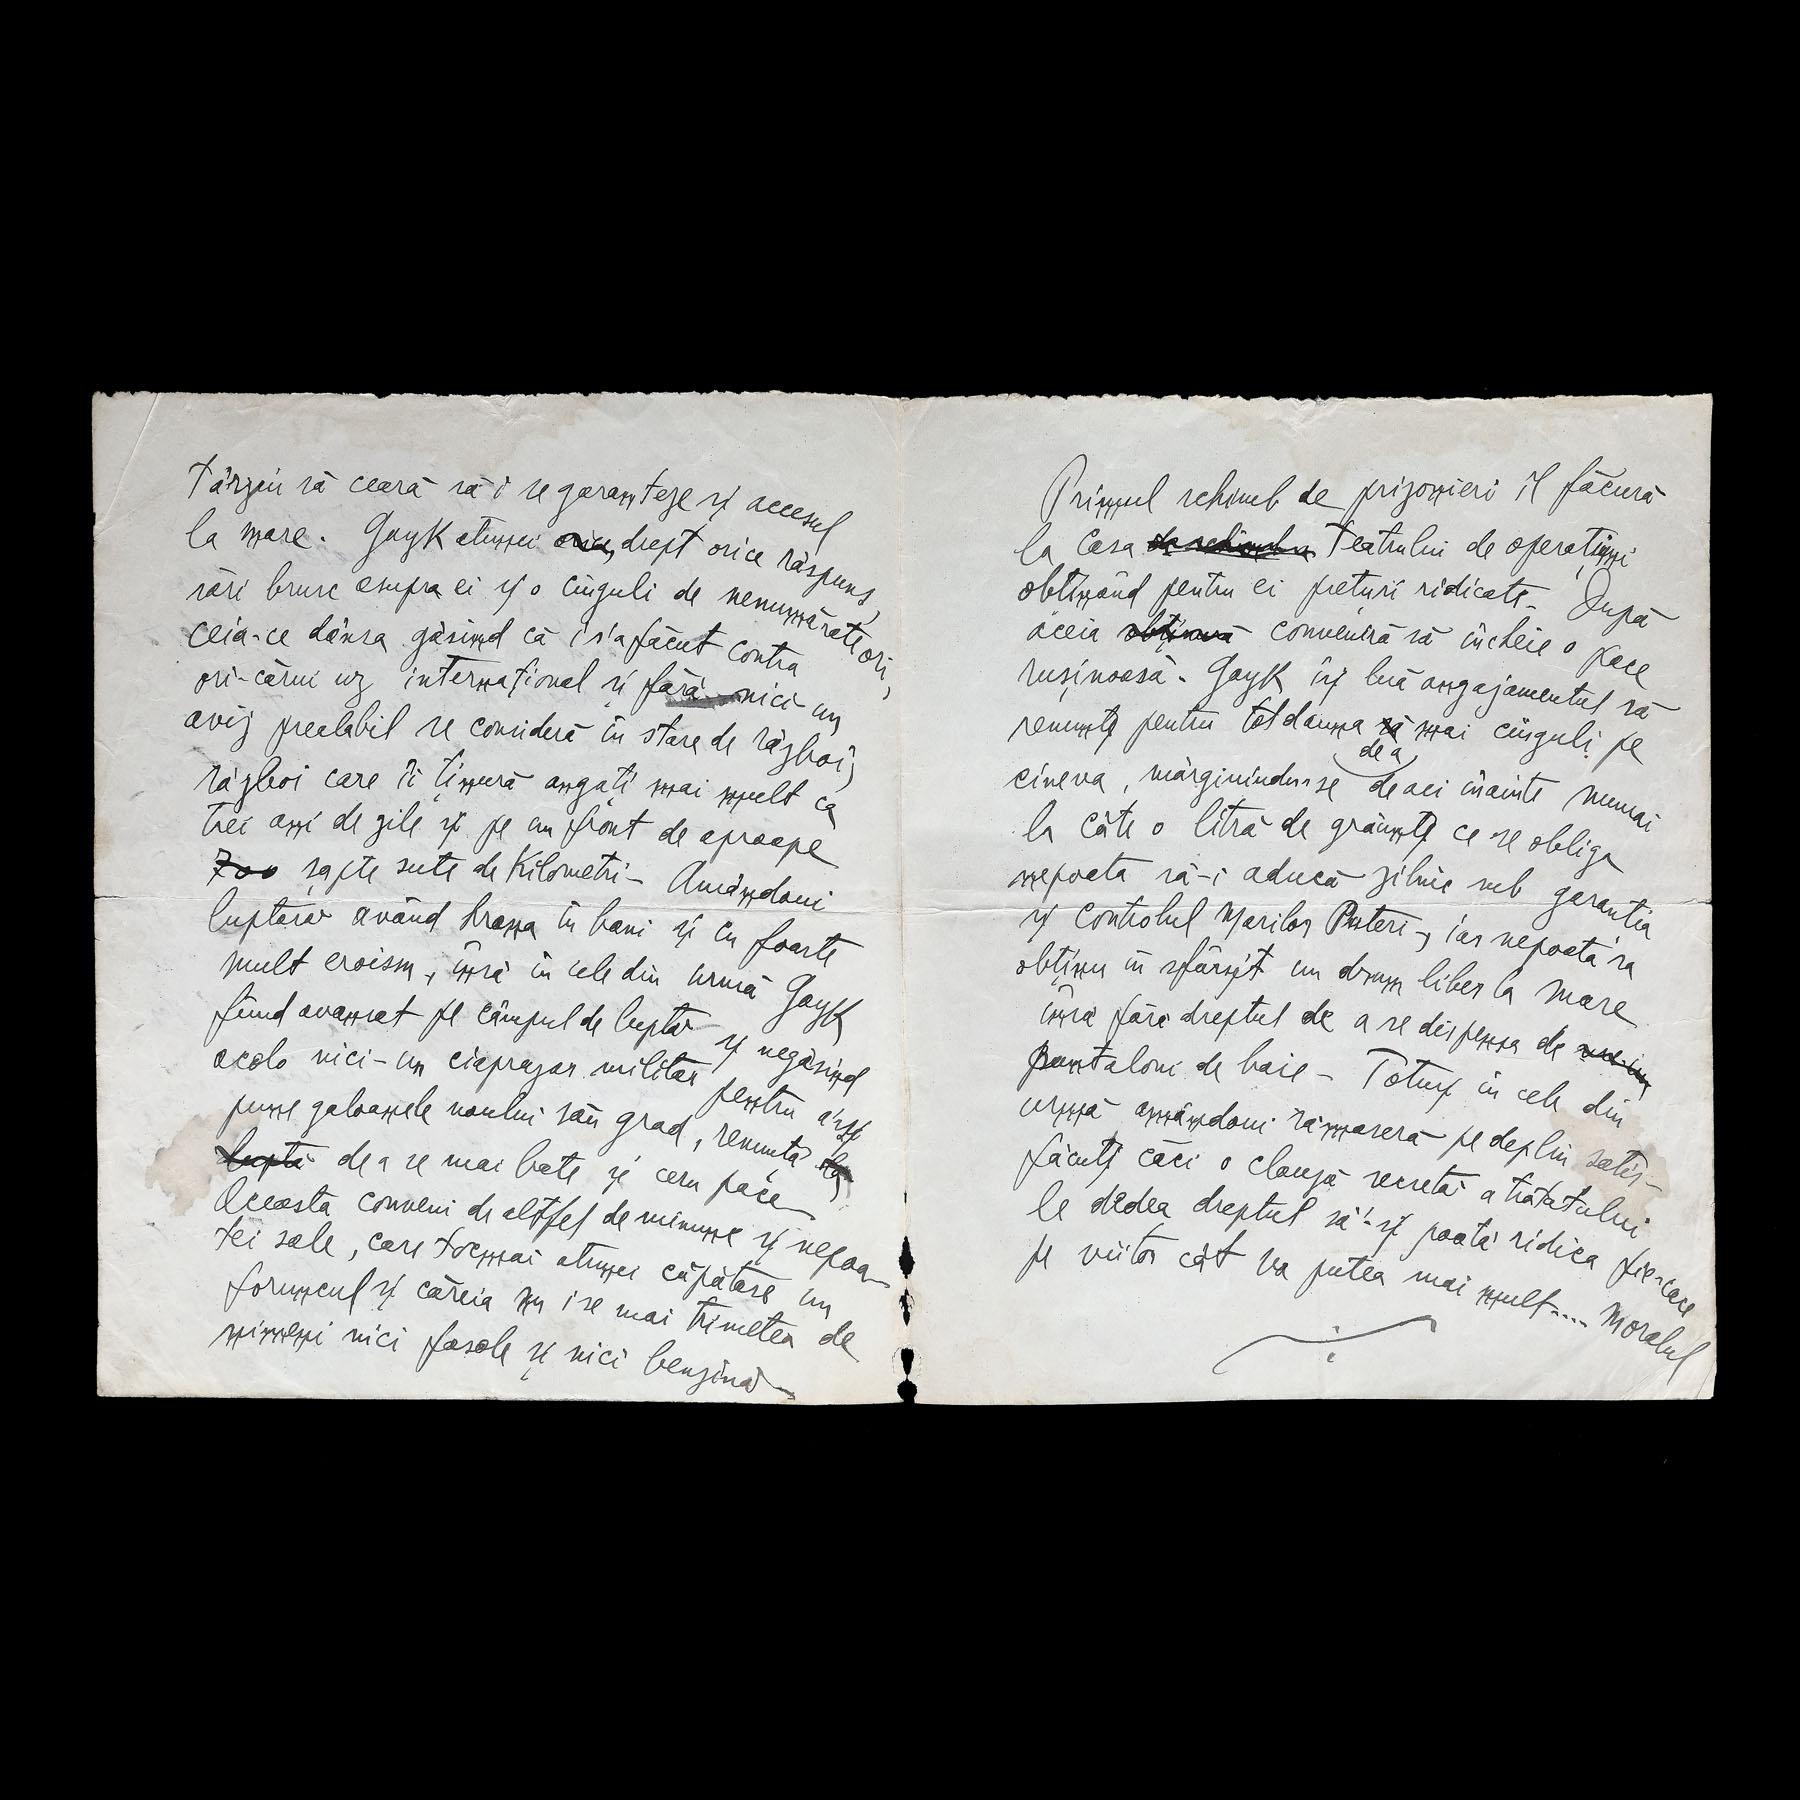 târziu să ceară să i se garanteze și accesul
la mare. Gayk atunci orice, drept orice răspuns,
sări brusc asupra ei și o ciuguli de nenumărate ori,
ceia-ce dânsa găsind că i s'a făcut contra
ori-cărui uz internațional și fără nici un
aviz prealabil se consideră în stare de război;
război care îi ținură angați mai mult ca
trei ani de zile și pe un front de aproape
700 șapte sute de Kilometri – Amândoui
luptară având hrana în bani și cu foarte
mult eroism, însă în cele din urmă Gayk
fiind avansat pe câmpul de luptă și negăsind
acolo nici-un ciaprazar militar pentru a'și
pune galoanele noului său grad, renunță la
luptă de a se mai bate și ceru pace –
Aceasta conveni de altfel de minune și nepoa-
tei sale, care tocmai atunci căpătase un
foruncul și căreia nu i se mai trimetea de
nimeni nici fasole și nici benzină –
Primul schimb de prizonieri îl făcură
la Casa de schimb a Teatrului de operațiuni
obținând pentru ei prețuri ridicate – După
aceia obținură conveniră să încheie o pace
rușinoasă. Gayk își luă angajamentul să
renunțe pentru totdauna să mai ciuguli pe
de a
cineva, mărginindu-se de aci înainte numai
la câte o litră de grăunțe ce se obliga
nepoata să-i aducă zilnic sub garanția
și controlul Marilor Puteri, iar nepoată'sa
obținu în sfârșit un drum liber la mare
însă fără dreptul de a se dispensa de
pantaloni de baie – Totuși în cele din
urmă amândoui rămaseră pe deplin satis-
făcuți căci o clauză secretă a tratatului
le dădea dreptul să'-și poată ridica fie-care
pe viitor cât va putea mai mult.... Moralul